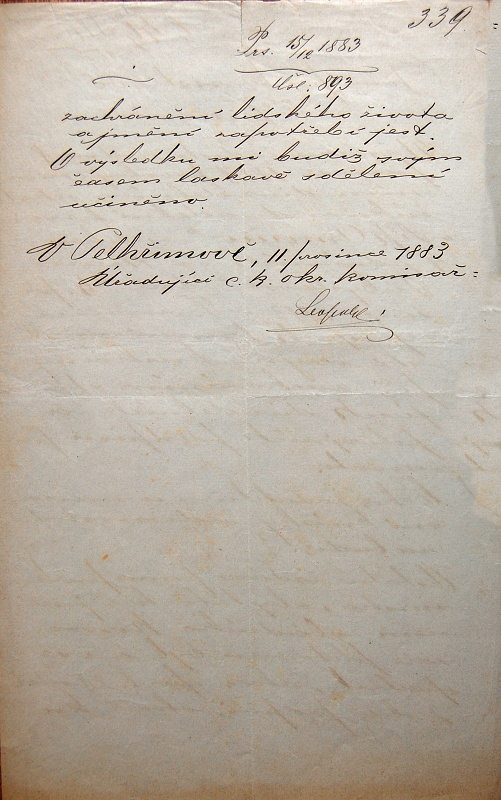 339.
Prs. 15/12 1883
Čísl: 893
zachránění lidského života
a jmění zapotřebí jest.
O výsledku mi budiž svým
časem laskavě sdělení
učiněno.
V Pelhřimově, 11 prosince 1883
Úřadující c. k. okr. komisař:
Leopold